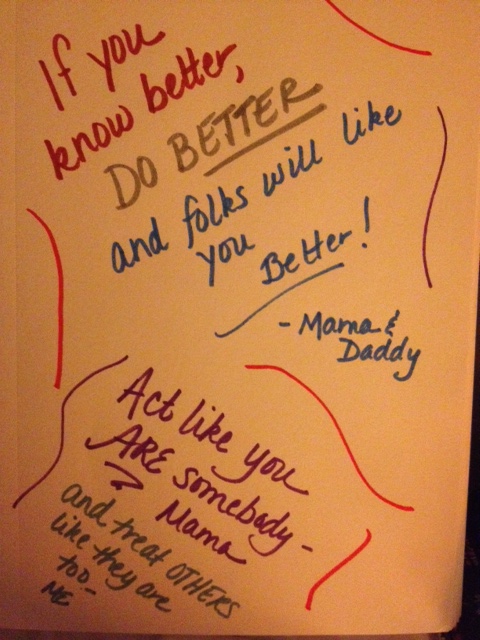 If you
know better,
DO BETTER
and folks will like
you Better!
- Mama &
Daddy
Act like you
ARE somebody -
Mama
and treat OTHERS
like they are
too -
ME